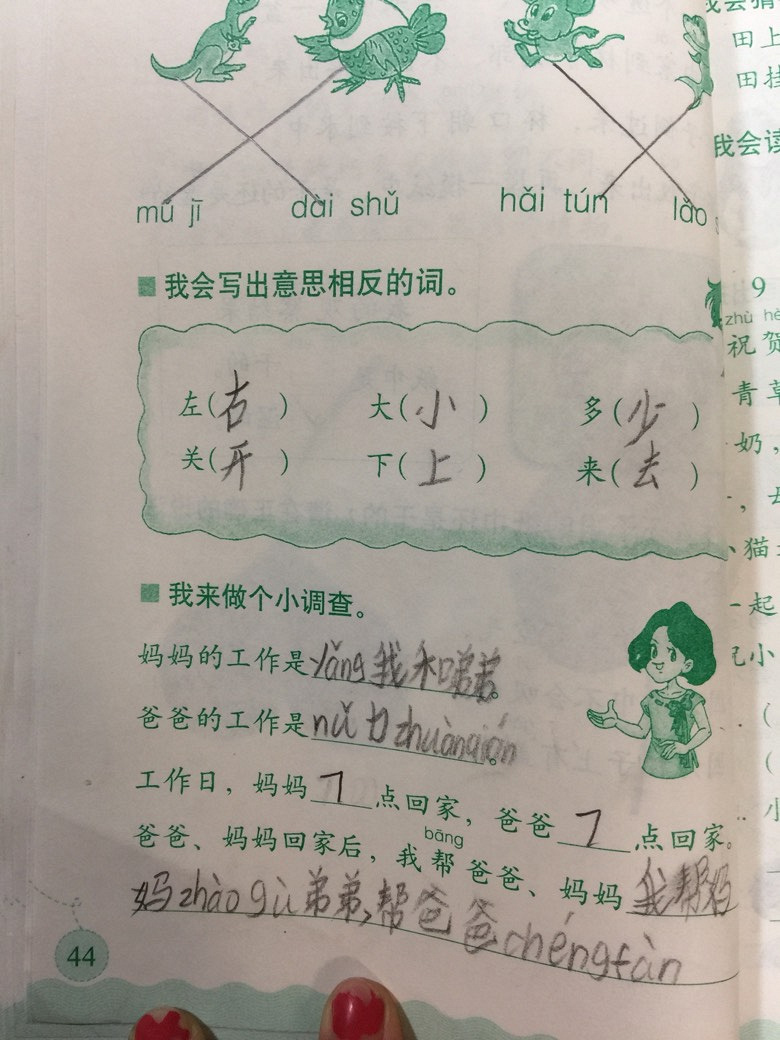 mǔ jī dài shǔ hǎi tún lǎo
■我会写出意思相反的词。
左(右) 大(小) 多(少)
关(开) 下(上) 来(去)
■我来做个小调查。
妈妈的工作是yǎng我和弟弟。
爸爸的工作是nǔ力zhuànqián。
工作日，妈妈7点回家，爸爸7点回家。
bāng
爸爸、妈妈回家后，我帮爸爸、妈妈我帮妈
妈zhào gù弟弟，帮爸爸chéngfàn
44
我会猜
田上
田挂
我会读
9
zhù hè
祝贺
青草
奶，
猫
一起
小